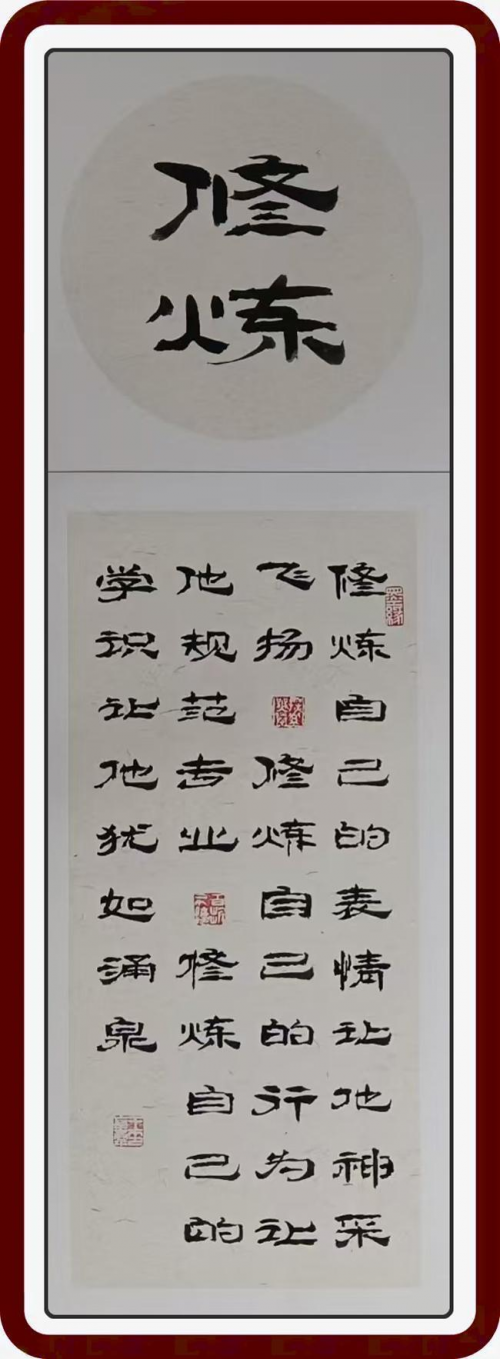 修炼
修炼自己的表情让他神采
飞扬 修炼自己的行为让
他规范专业 修炼自己的
学识让他犹如涌泉